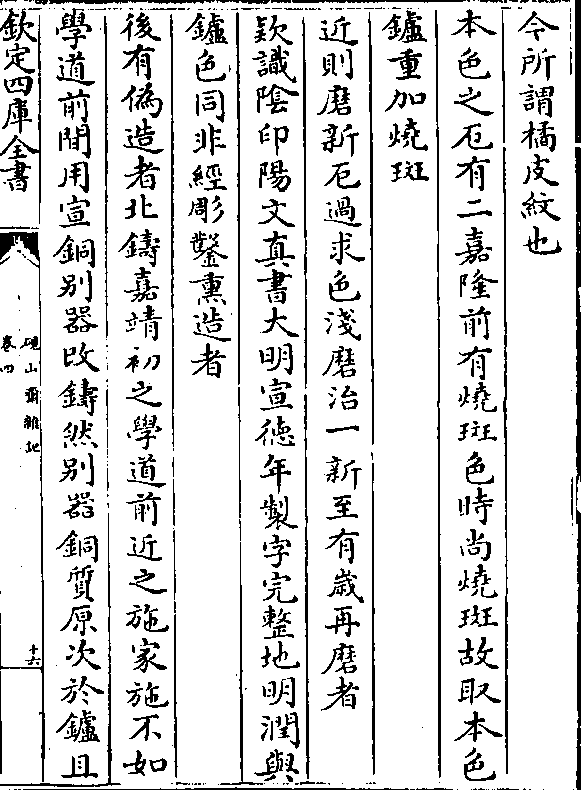 今所謂橘皮紋也
本色之厄有二嘉隆前有燒斑色時尚燒斑故取本色
鑪重加燒斑
近則磨新厄過求色淺磨治一新至有歲再磨者
欵識陰印陽文真書大明宣德年製字完整地明潤與
鑪色同非經彫鑿熏造者
後有偽造者北鑄嘉靖初之學道前近之施家施不如
學道前間用宣銅别器改鑄然别器銅質原次於鑪且
欽定四庫全書
卷四
硯山齋雜記
十六